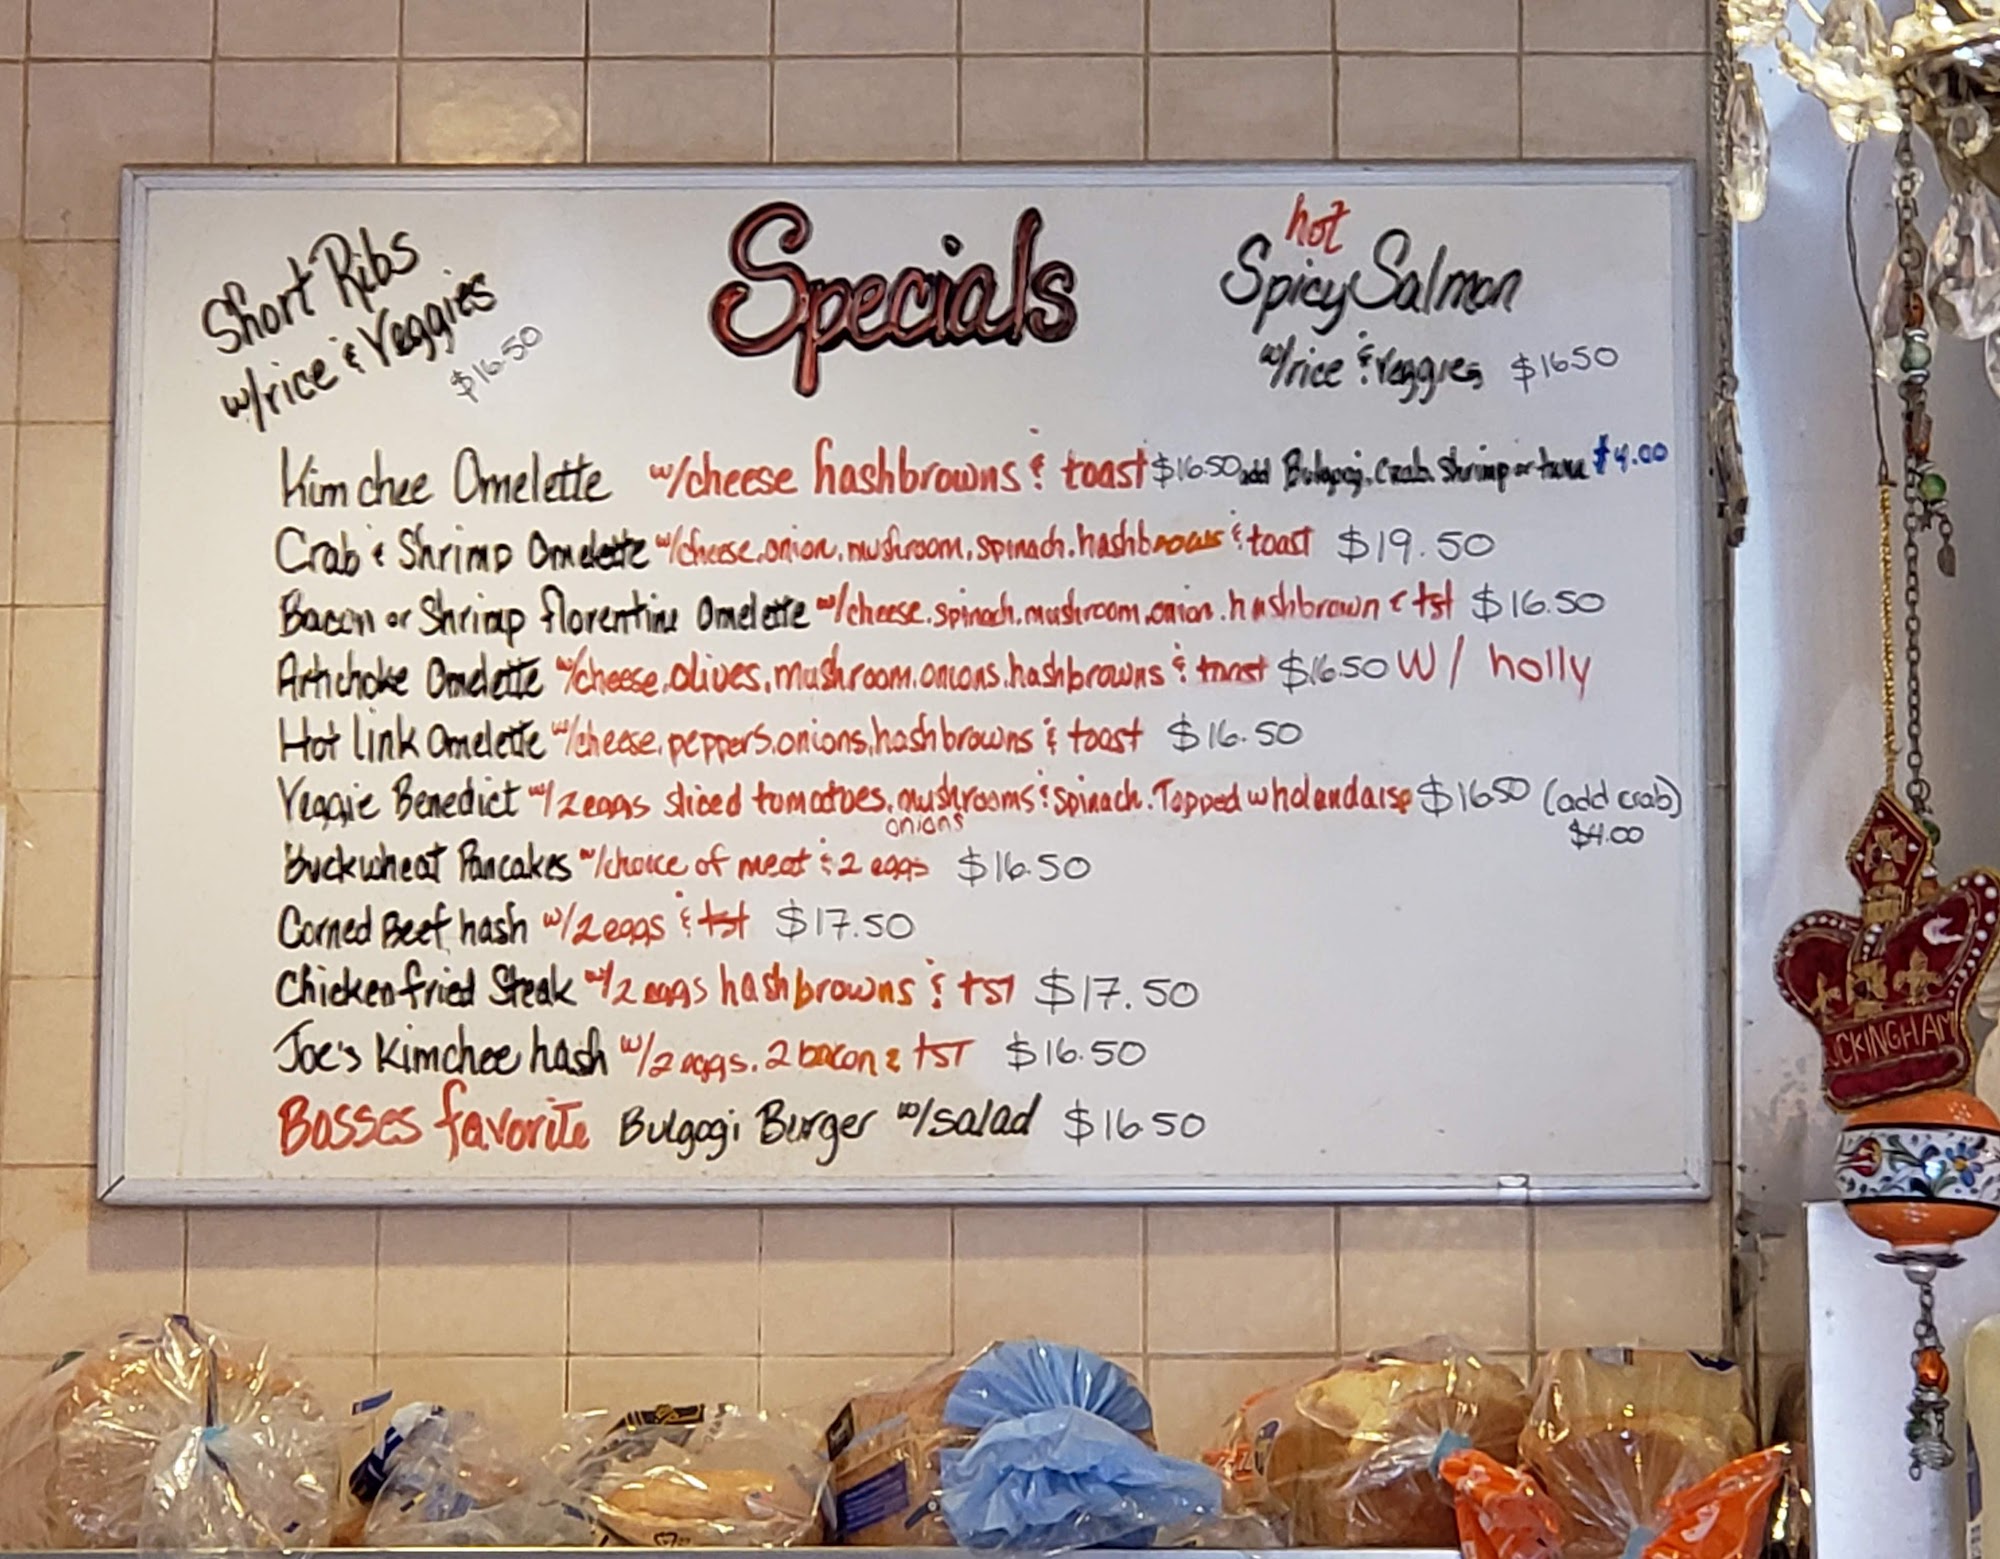 Specials
Short Ribs
w/rice & Veggies
$16.50
hot
Spicy Salmon
w/rice & Veggies $16.50
Kimchee Omelette w/cheese hashbrowns & toast $16.50 add Bulgogi. Crab. Shrimp or tuna $4.00
Crab & Shrimp Omelette w/cheese.onion.mushroom.spinach.hashbrows & toast $19.50
Bacon or Shrimp florentine Omelette w/cheese.spinach.mushroom.onion.hashbrown & tst $16.50
Artichoke Omelette w/cheese.olives.mushroom.onions.hashbrowns & toast $16.50 W/ holly
Hot link Omelette w/cheese.peppers.onions.hashbrowns & toast $16.50
Veggie Benedict w/2 eggs sliced tomatoes.mushrooms & spinach. Topped w holandaise $16.50 (add crab)
onions
$4.00
Buckwheat Pancakes w/choice of meat & 2 eggs $16.50
Corned Beef hash w/2 eggs & tst $17.50
Chicken fried Steak w/2 eggs hashbrowns & tst $17.50
Joe's Kimchee hash w/2 eggs. 2 bacon & TST $16.50
Bosses favorite Bulgogi Burger w/salad $16.50
UCKINGHAM